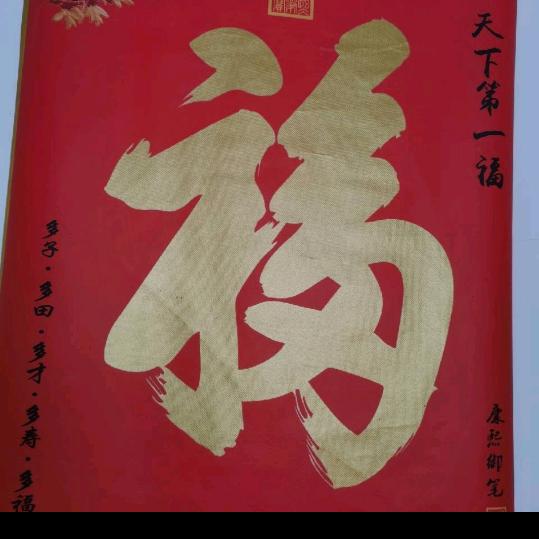 天下第一福
福
多子·多田·多才·多寿·多福
康熙御笔